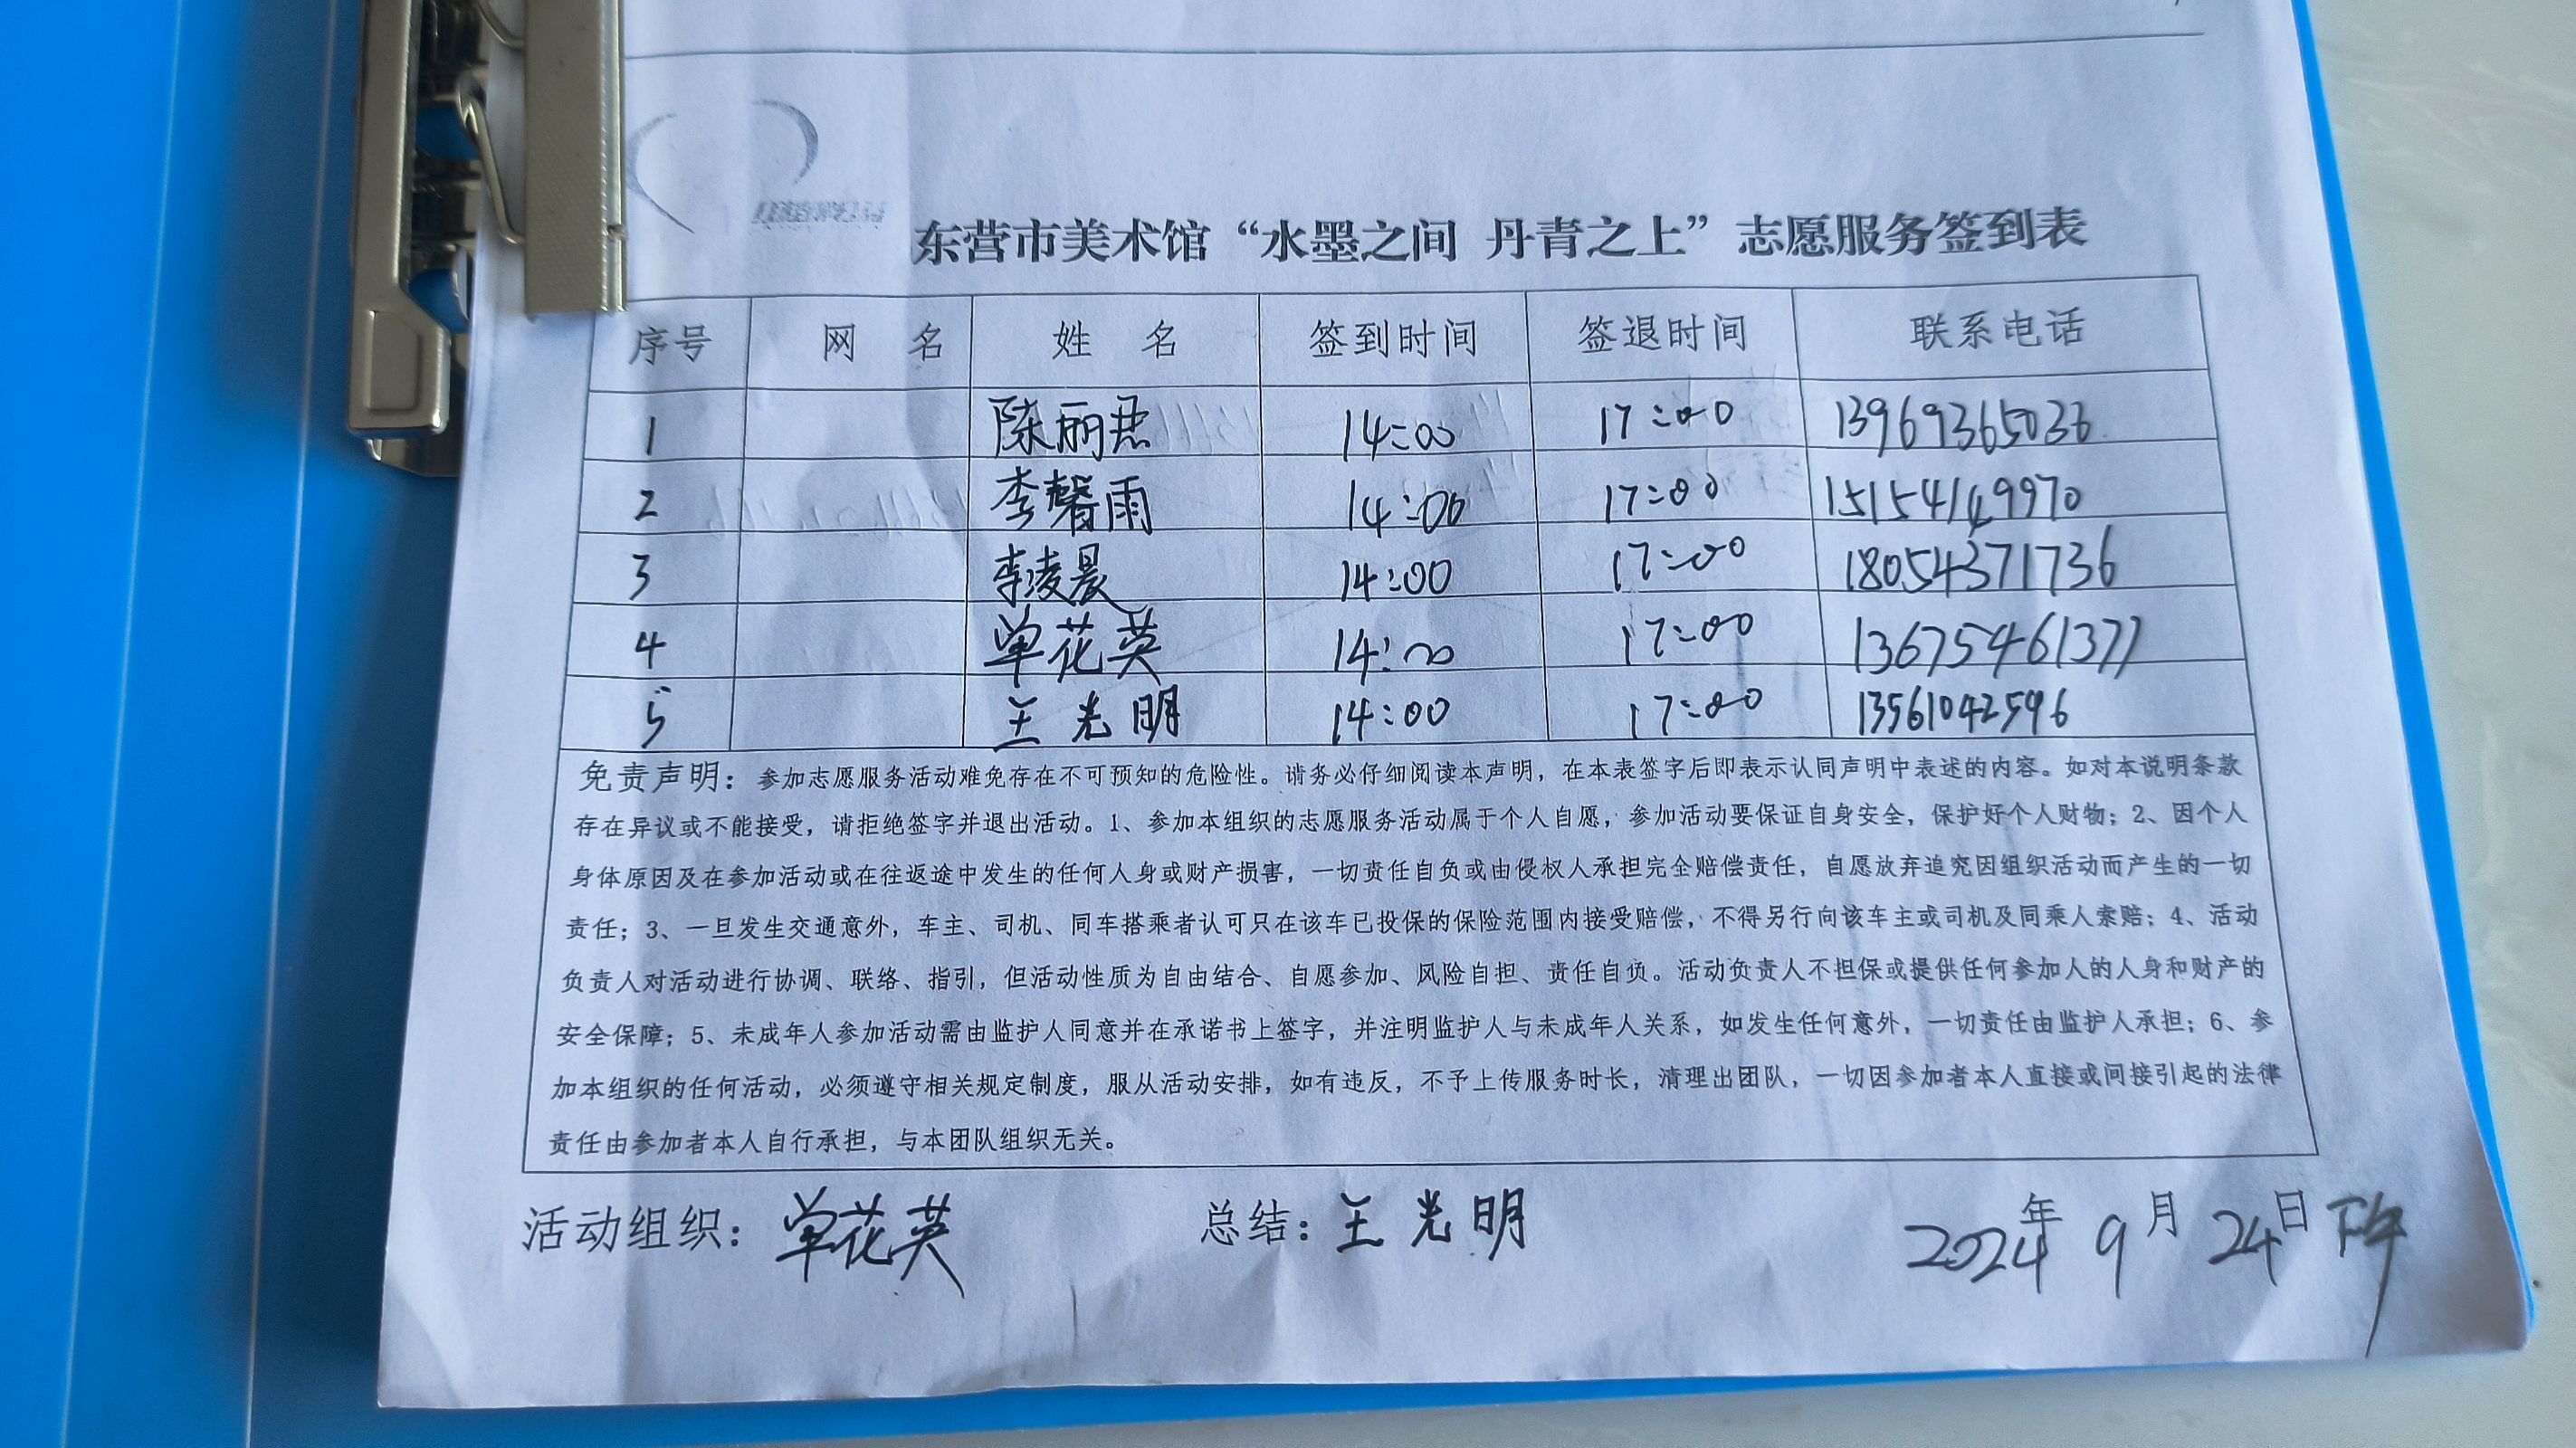 东营市美术馆“水墨之间 丹青之上”志愿服务签到表
序号 网 名 姓 名 签到时间 签退时间 联系电话
1 陈丽君 14:00 17:00 13969365036
2 李馨雨 14:00 17:00 15154149970
3 李凌晨 14:00 17:00 18054371736
4 单花英 14:00 17:00 13675461377
5 王光明 14:00 17:00 13561042596
免责声明：参加志愿服务活动难免存在不可预知的危险性。请务必仔细阅读本声明，在本表签字后即表示认同声明中表述的内容。如对本说明条款
存在异议或不能接受，请拒绝签字并退出活动。1、参加本组织的志愿服务活动属于个人自愿，参加活动要保证自身安全，保护好个人财物；2、因个人
身体原因及在参加活动或在往返途中发生的任何人身或财产损害，一切责任自负或由侵权人承担完全赔偿责任，自愿放弃追究因组织活动而产生的一切
责任；3、一旦发生交通意外，车主、司机、同车搭乘者认可只在该车已投保的保险范围内接受赔偿，不得另行向该车主或司机及同乘人索赔；4、活动
负责人对活动进行协调、联络、指引，但活动性质为自由结合、自愿参加、风险自担、责任自负。活动负责人不担保或提供任何参加人的人身和财产的
安全保障；5、未成年人参加活动需由监护人同意并在承诺书上签字，并注明监护人与未成年人关系，如发生任何意外，一切责任由监护人承担；6、参
加本组织的任何活动，必须遵守相关规定制度，服从活动安排，如有违反，不予上传服务时长，清理出团队，一切因参加者本人直接或间接引起的法律
责任由参加者本人自行承担，与本团队组织无关。
活动组织：单花英 总结：王光明 2024年9月24日下午